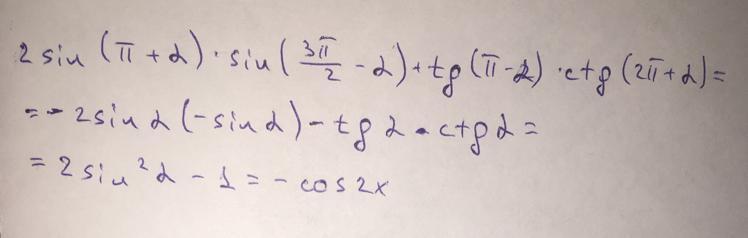 2 sin (π + α) · sin (3π/2 - α) + tg (π - α) · ctg (2π + α) =
= - 2 sin α (- sin α) - tg α · ctg α =
= 2 sin² α - 1 = - cos 2x